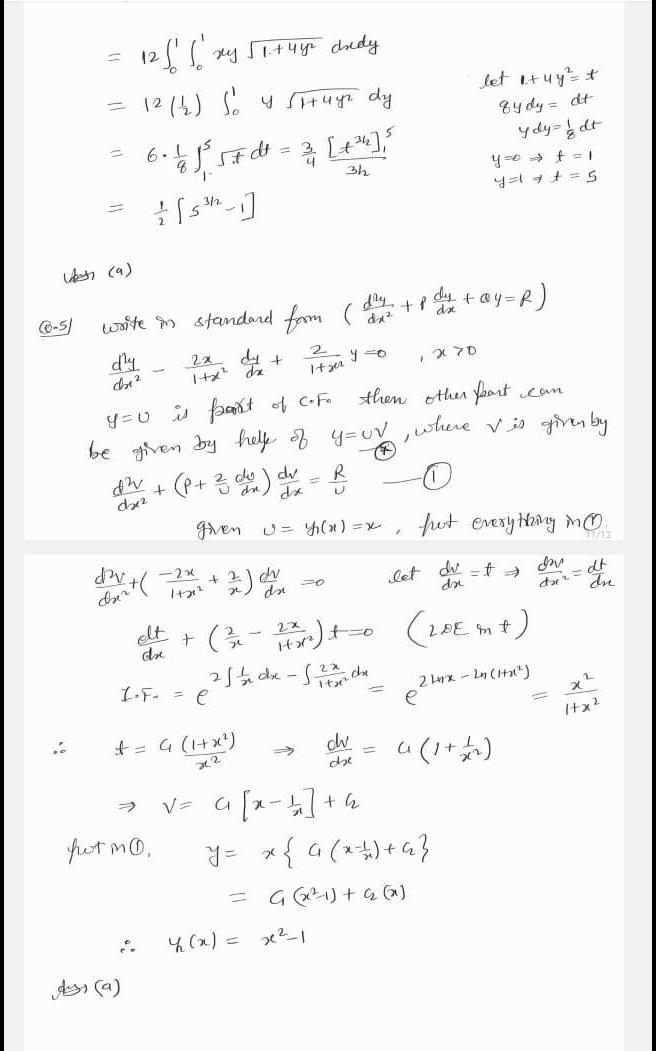 = 12 ∫₀¹ ∫₀¹ xy √1+4y² dxdy
let 1+4y² = t
= 12 (1/2) ∫₀¹ y √1+4y² dy
8y dy = dt
y dy = 1/8 dt
= 6·1/8 ∫₁⁵ √t dt = 3/4 [t^3/2]₁⁵ / 3/2
y=0 ⇒ t = 1
y=1 ⇒ t = 5
= 1/2 [5^3/2 - 1]
Ans (a)
Q-5/ write in standard form ( d²y/dx² + P dy/dx + Qy = R )
d²y/dx² - 2x/1+x² dy/dx + 2/1+x² y = 0 , x > 0
y=u is part of C.F. then other part can
be given by help of y=uv , where v is given by
d²v/dx² + (P + 2/u du/dx) dv/dx = R/u — ①
given u = y₁(x) = x , put everything in ①.
11/12
d²v/dx² + ( -2x/1+x² + 2/x ) dv/dx = 0 let dv/dx = t ⇒ d²v/dx² = dt/dx
dt/dx + (2/x - 2x/1+x²) t = 0 (LDE in t)
I.F. = e^2∫1/x dx - ∫2x/1+x² dx = e^2lnx - ln(1+x²) = x²/1+x²
∴ t = C₁ (1+x²)/x² ⇒ dv/dx = C₁ (1 + 1/x²)
⇒ v = C₁ [x - 1/x] + C₂
put in ①, y = x { C₁ (x - 1/x) + C₂ }
= C₁ (x²-1) + C₂ (x)
∴ y₂(x) = x²-1
Ans (a)